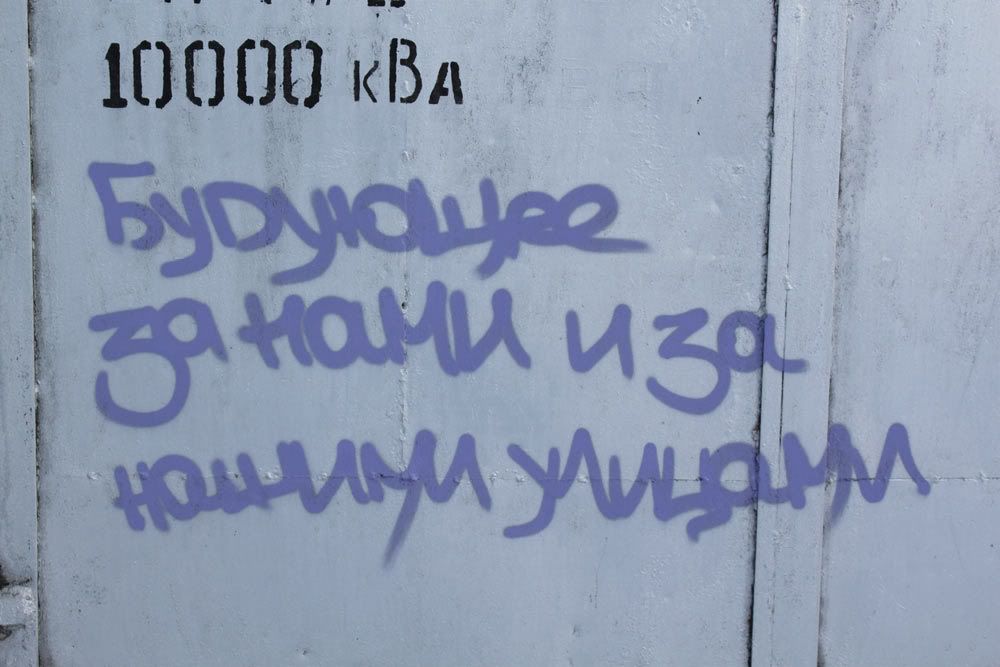 10000 кВА
Будующее
за нами и за
нашими улицами